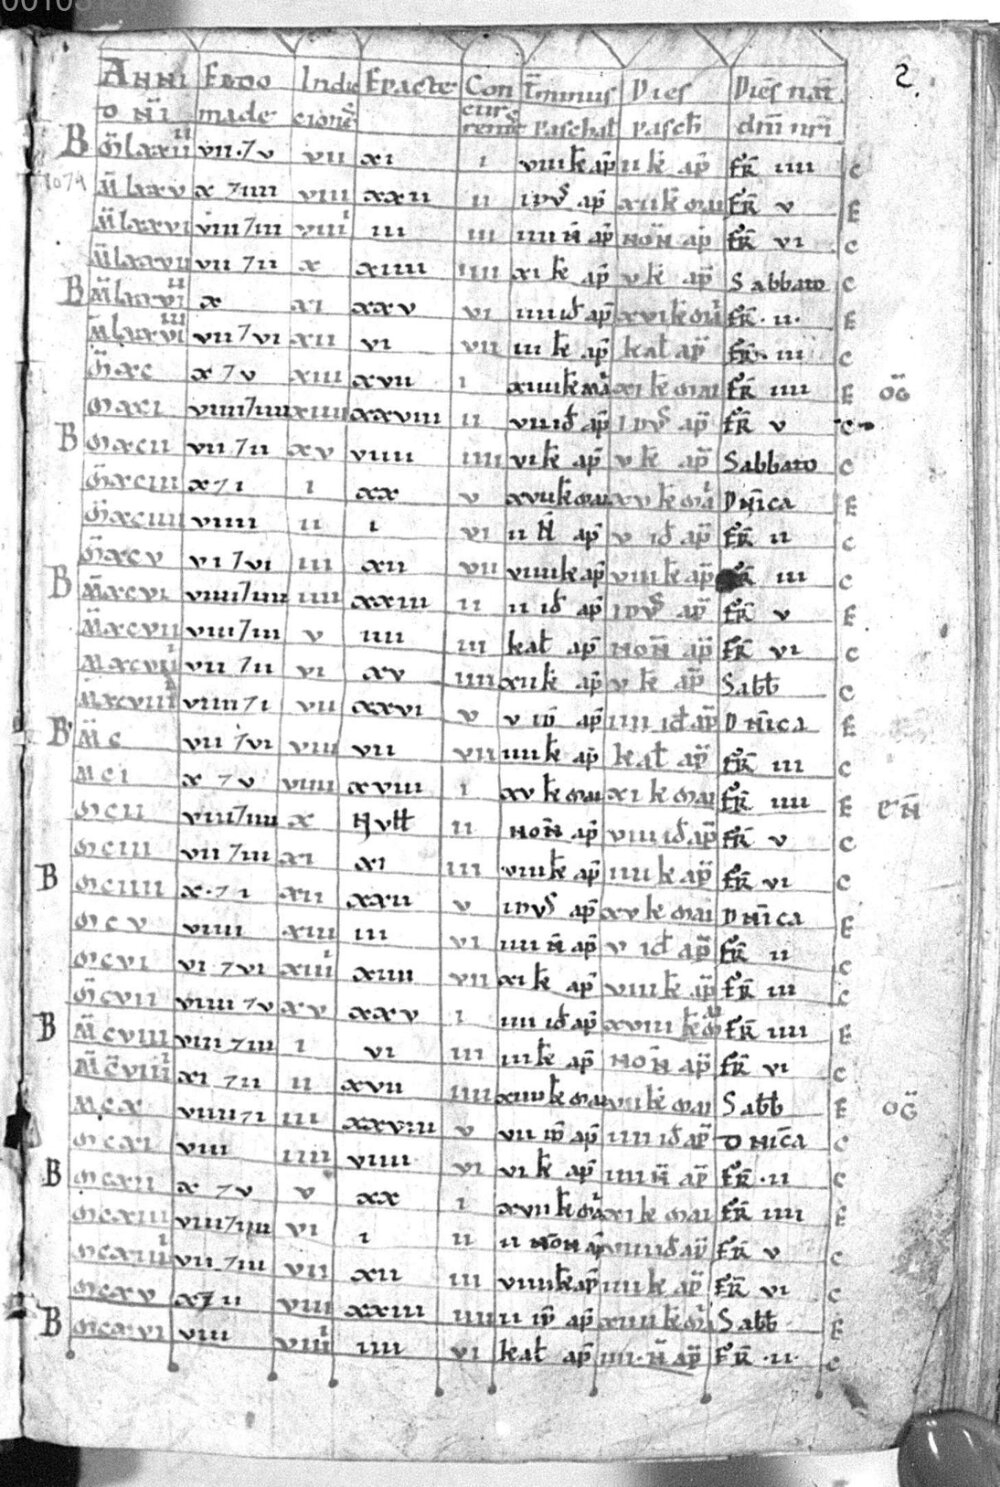 Anni Ebdo Indic Epacte Con T̄minus Dies Dies nat̄
D N̄I made cionēs curs rent Paschal Pasch dn̄i nr̄i
B M̄lxxii ii vii·7v vii xi i viii k̄ ap̄ ii k̄ ap̄ F̄R iiii C
1074 M̄lxxv x 7iiii viii xxii ii idvs ap̄ xiii k̄ mai F̄R v E
M̄lxxvi viiii7iii viiii iii iii iiii N̄ ap̄ NOÑ ap̄ F̄R vi C
M̄lxxvii vii 7ii x xiiii iiii xi k̄ ap̄ v k̄ ap̄ Sabbato C
B M̄lxxvi ii x xi xxv vi iiii id̄ ap̄ xvi k̄ mai F̄R·ii· E
M̄lxxvi iii vii7vi xii vi vii iii k̄ ap̄ kal ap̄ F̄R·iii C
M̄xc x 7v xiii xvii i xiiii k̄ mai xi k̄ mai F̄R iiii E OḠ
Mxci viiii7iiii xiiii xxviii ii viii id̄ ap̄ idvs ap̄ F̄R v C
B Mxcii vii 7ii xv viiii iiii vi k̄ ap̄ v k̄ ap̄ Sabbato C
M̄xciii x7i i xx v xvii k̄ mai xv k̄ mai DN̄ica E
M̄xciiii viiii ii i vi ii N̄ ap̄ v id ap̄ F̄R ii C
M̄xcv vi 7vi iii xii vii viiii k ap̄ viii k̄ ap̄ F̄R iii C
B M̄xcvi viiii7iiii iiii xxiii ii ii id̄ ap̄ idvs ap̄ F̄R v E
M̄xcvii viiii7iii v iiii iii kal ap̄ NOÑ ap̄ F̄R vi C
Mxcviii vii 7ii vi xv iiii xii k ap̄ v k̄ ap̄ Sabb C
M̄xcviiii viiii 7i vii xxvi v v id̄ ap̄ iiii id̄ ap̄ DN̄ica E
B M̄c vii 7vi viii vii vii iiii k̄ ap̄ kal ap̄ F̄R iii C
Mci x 7v viiii xviii i xv k̄ mai xi k mai F̄R iiii E EÑ
Mcii viiii7iiii x Null ii NOÑ ap̄ viii id̄ ap̄ F̄R v C
Mciii vii 7iii xi xi iii viii k̄ ap̄ iiii k ap̄ F̄R vi C
B Mciiii x·7i xii xxii v idvs ap̄ xv k mai DN̄ica E
Mcv viiii xiii iii vi iiii N̄ ap̄ v id̄ ap̄ F̄R ii C
Mcvi vi 7vi xiiii xiiii vii xi k̄ ap̄ viii k̄ ap̄ F̄R iii C
M̄cvii viiii 7v xv xxv i iiii id̄ ap̄ xviii k̄ m F̄R iiii E
B M̄cviii viii 7iii i vi iii iii k̄ ap̄ NOÑ ap̄ F̄R vi C
M̄cviiii xi 7ii ii xvii iiii xiiii k mai vii k̄ mai Sabb E OḠ
Mcx viiii7i iii xxviii v vii id̄ ap̄ iiii id̄ ap̄ DNica C
Mcxi viii iiii viiii vi vi k̄ ap̄ iiii N̄ ap̄ F̄R·ii C
B Mcxii x 7v v xx i xvii k̄ mai xi k mai F̄R iiii E
Mcxiii viiii7iiii vi i ii ii NON ap̄ viiii id ap̄ F̄R v C
Mcxiiii vii 7iii vii xii iii viiii k ap̄ iiii k ap̄ F̄R vi C
Mcxv x7ii viii xxiii iiii ii id̄ ap̄ xiiii k̄ mai Sabb E
B Mcxvi viii viiii iiii vi kal ap̄ iiii·N̄ ap̄ F̄R·ii· C
2.